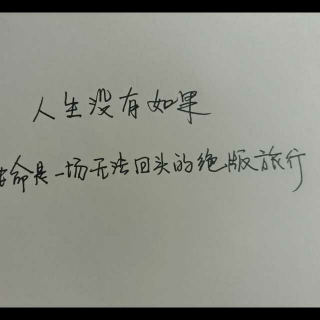 人生没有如果
命是一场无法回头的绝版旅行